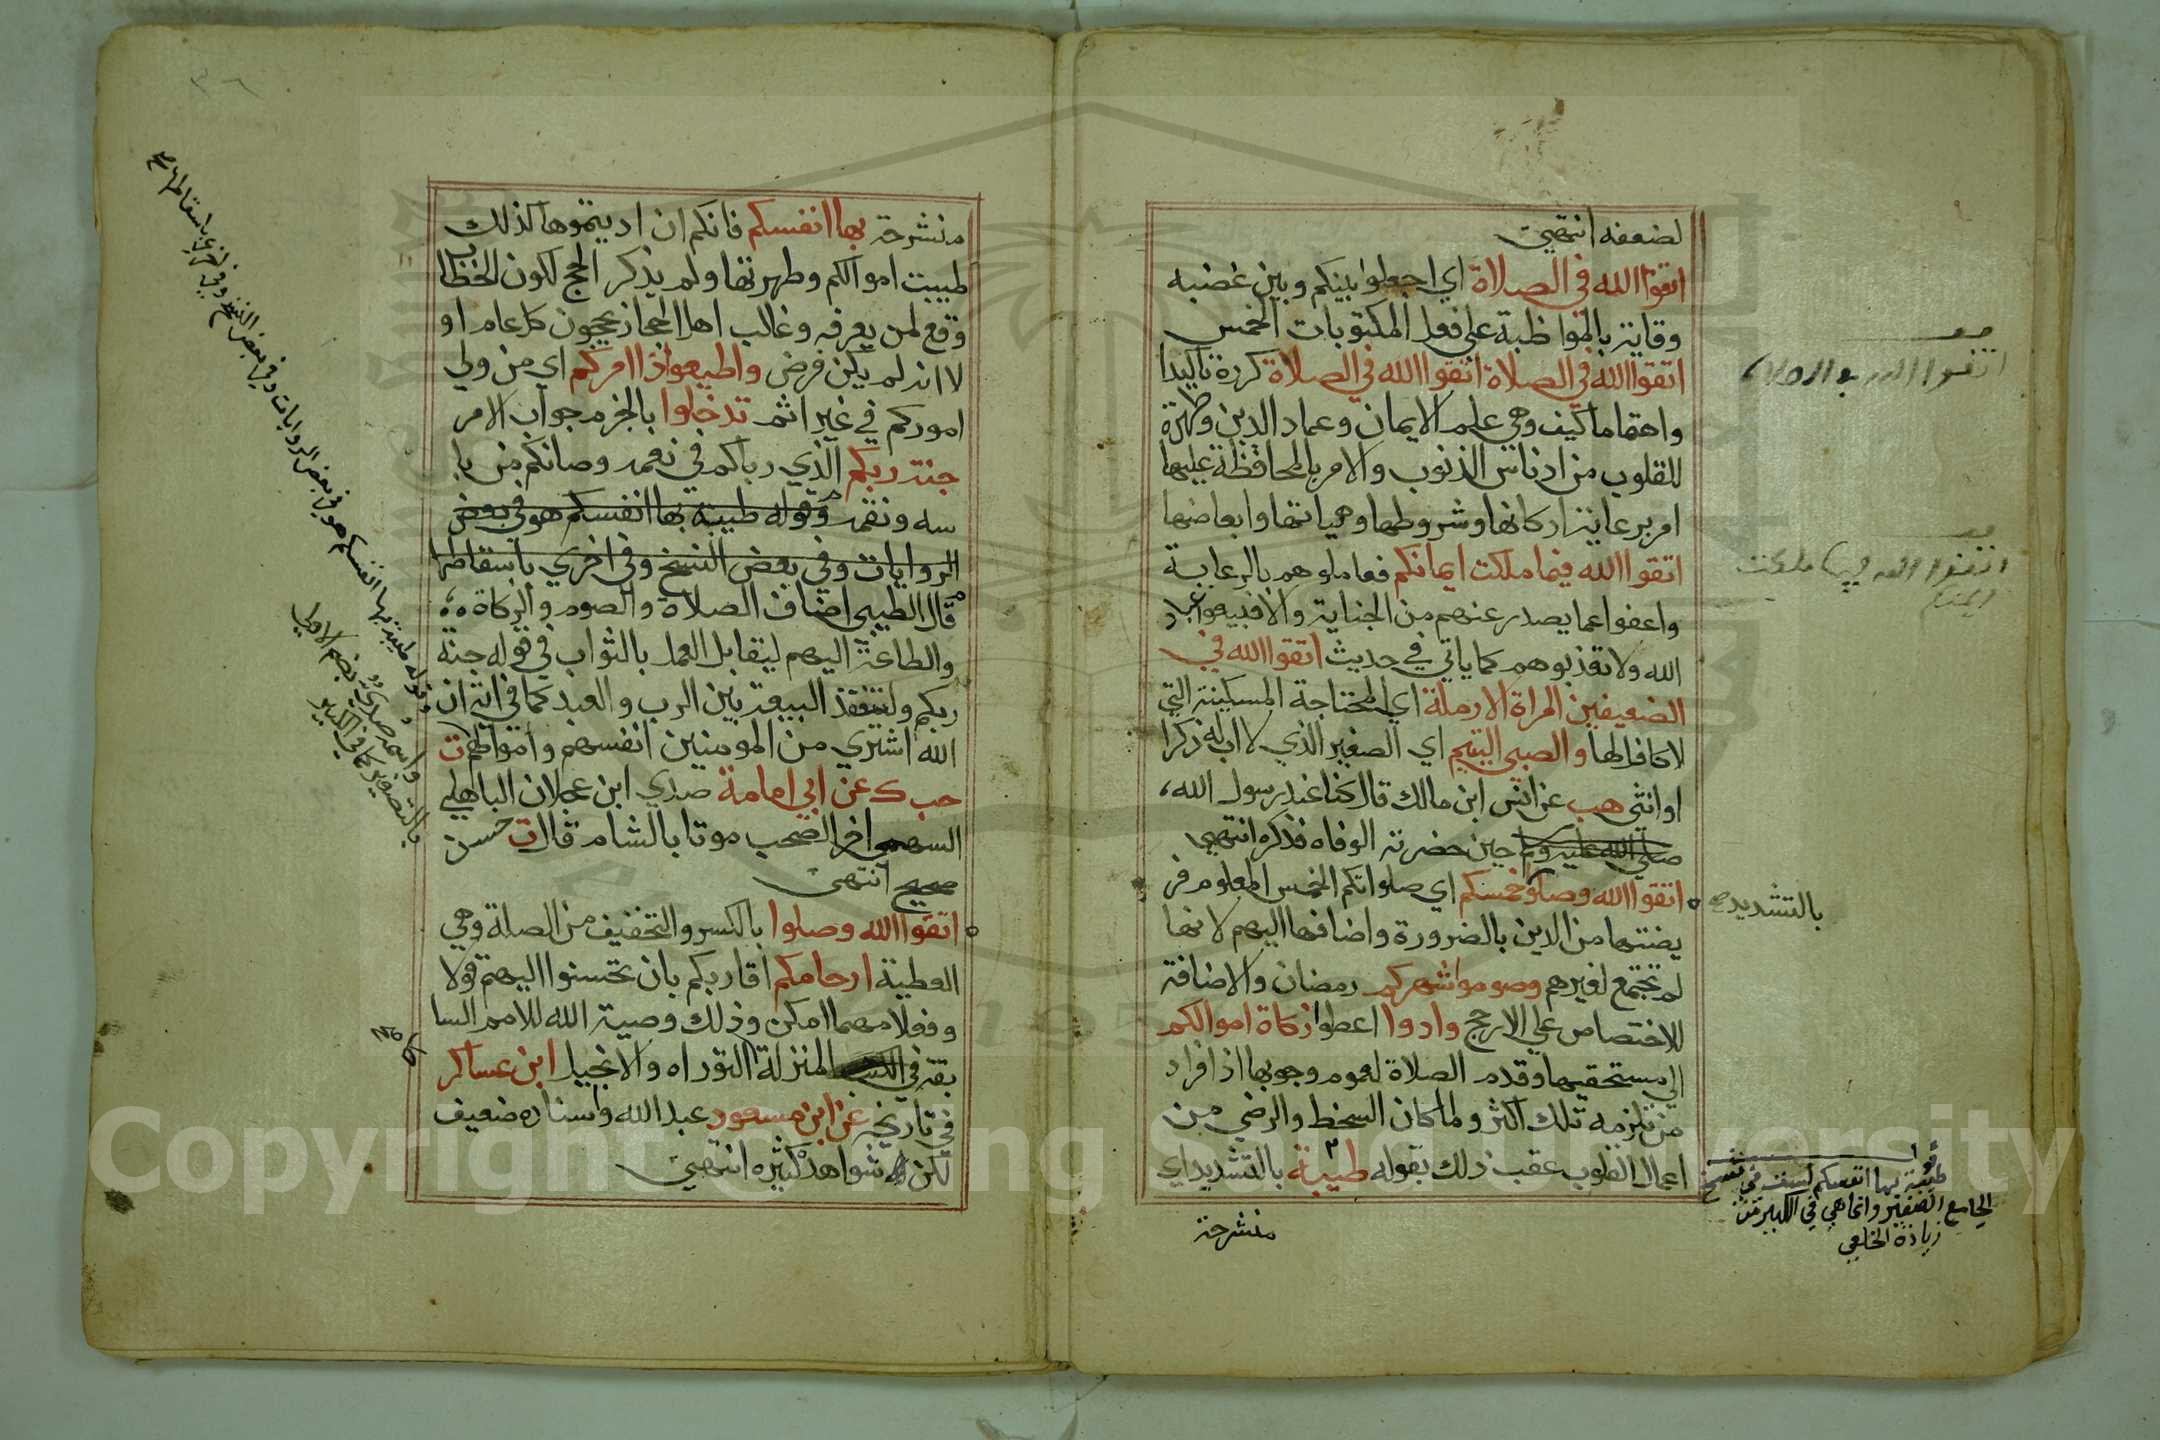 لضعفه انتهى
اتقوا الله في الصلاة اي اجعلوا بينكم وبين غضبه
وقاية بالمواظبة على فعل المكتوبات الخمس
اتقوا الله في الصلاة اتقوا الله في الصلاة كرره تاكيدا
واهتماما كيف وهي علم الايمان وعماد الدين وطهرة
للقلوب من ادناس الذنوب والامر بالمحافظة عليها
امر برعاية اركانها وشروطها وهياتها وابعاضها
اتقوا الله فيما ملكت ايمانكم فعاملوهم بالرعاية
واعفوا عما يصدر عنهم من الجناية والا فبيعوا عباد
الله ولا تعذبوهم كما ياتي في حديث اتقوا الله في
الضعيفين المراة الارملة اي المحتاجة المسكينة التي
لا كافل لها والصبي اليتيم اي الصغير الذي لا اب له ذكرا
او انثى هب عن انس ابن مالك قال كنا عند رسول الله
صلى الله عليه وسلم حين حضرته الوفاه فذكره انتهى
اتقوا الله وصلوا خمسكم اي صلواتكم الخمس المعلوم فر
يضتها من الدين بالضرورة واضافها اليهم لانها
لم تجتمع لغيرهم وصوموا شهركم رمضان والاضافة
للاختصاص على الارجح وادوا اعطوا زكاة اموالكم
الى مستحقيها وقدم الصلاة لعموم وجوبها اذ افراد
من تلزمه تلك اكثر ولما كان السخط والرضى من
اعمال القلوب عقب ذلك بقوله طيبة بالتشديد اي
منشرحة
اتقوا الله في الصلاة
اتقوا الله فيما ملكت
ايمانكم
بالتشديد صح
قوله
طيبة بها انفسكم ليست في نسخ
الجامع الصغير وانما هي في الكبير من
زيادة الخلعي
منشرحة بها انفسكم فانكم ان اديتموها كذلك
طيبت اموالكم وطهرتها ولم يذكر الحج لكون الخطاب
وقع لمن يعرفه وغالب اهل الحجاز يحجون كل عام او
لانه لم يكن فرض واطيعوا ذا امركم اي من ولي
اموركم في غير اثم تدخلوا بالجزم جواب الامر
جنة ربكم الذي رباكم في نعمه وصانكم من با
سه ونقمه وقوله طيبة بها انفسكم هو في بعض
الروايات وفي بعض النسخ وفي اخرى باسقاطها
قال الطيبي اضاف الصلاة والصوم والزكاة
والطاعة اليهم ليقابل العمل بالثواب في قوله جنة
ربكم ولتنعقد البيعة بين الرب والعبد كما في اية ان
الله اشترى من المومنين انفسهم واموالهم ت
حب ك عن ابي امامة صدي ابن عجلان الباهلي
السهمي اخر الصحب موتا بالشام قال ت حسن
صحيح انتهى
اتقوا الله وصلوا بالكسر والتخفيف من الصلة وهي
العطية ارحامكم اقاربكم بان تحسنوا اليهم قولا
وفعلا مهما امكن وذلك وصية الله للامم السا
بقة في الكتب المنزلة التوراه والانجيل ابن عساكر
في تاريخه عن ابن مسعود عبد الله واسناده ضعيف
لكن له شواهد كثيره انتهى
وقوله طيبة بها انفسكم هو في بعض الروايات وفي بعض النسخ وفي اخرى باسقاطها صح
واسمه صدي بضم الاولى
بالتصغير كما في الكبير
Copyright © King Saud University
1957